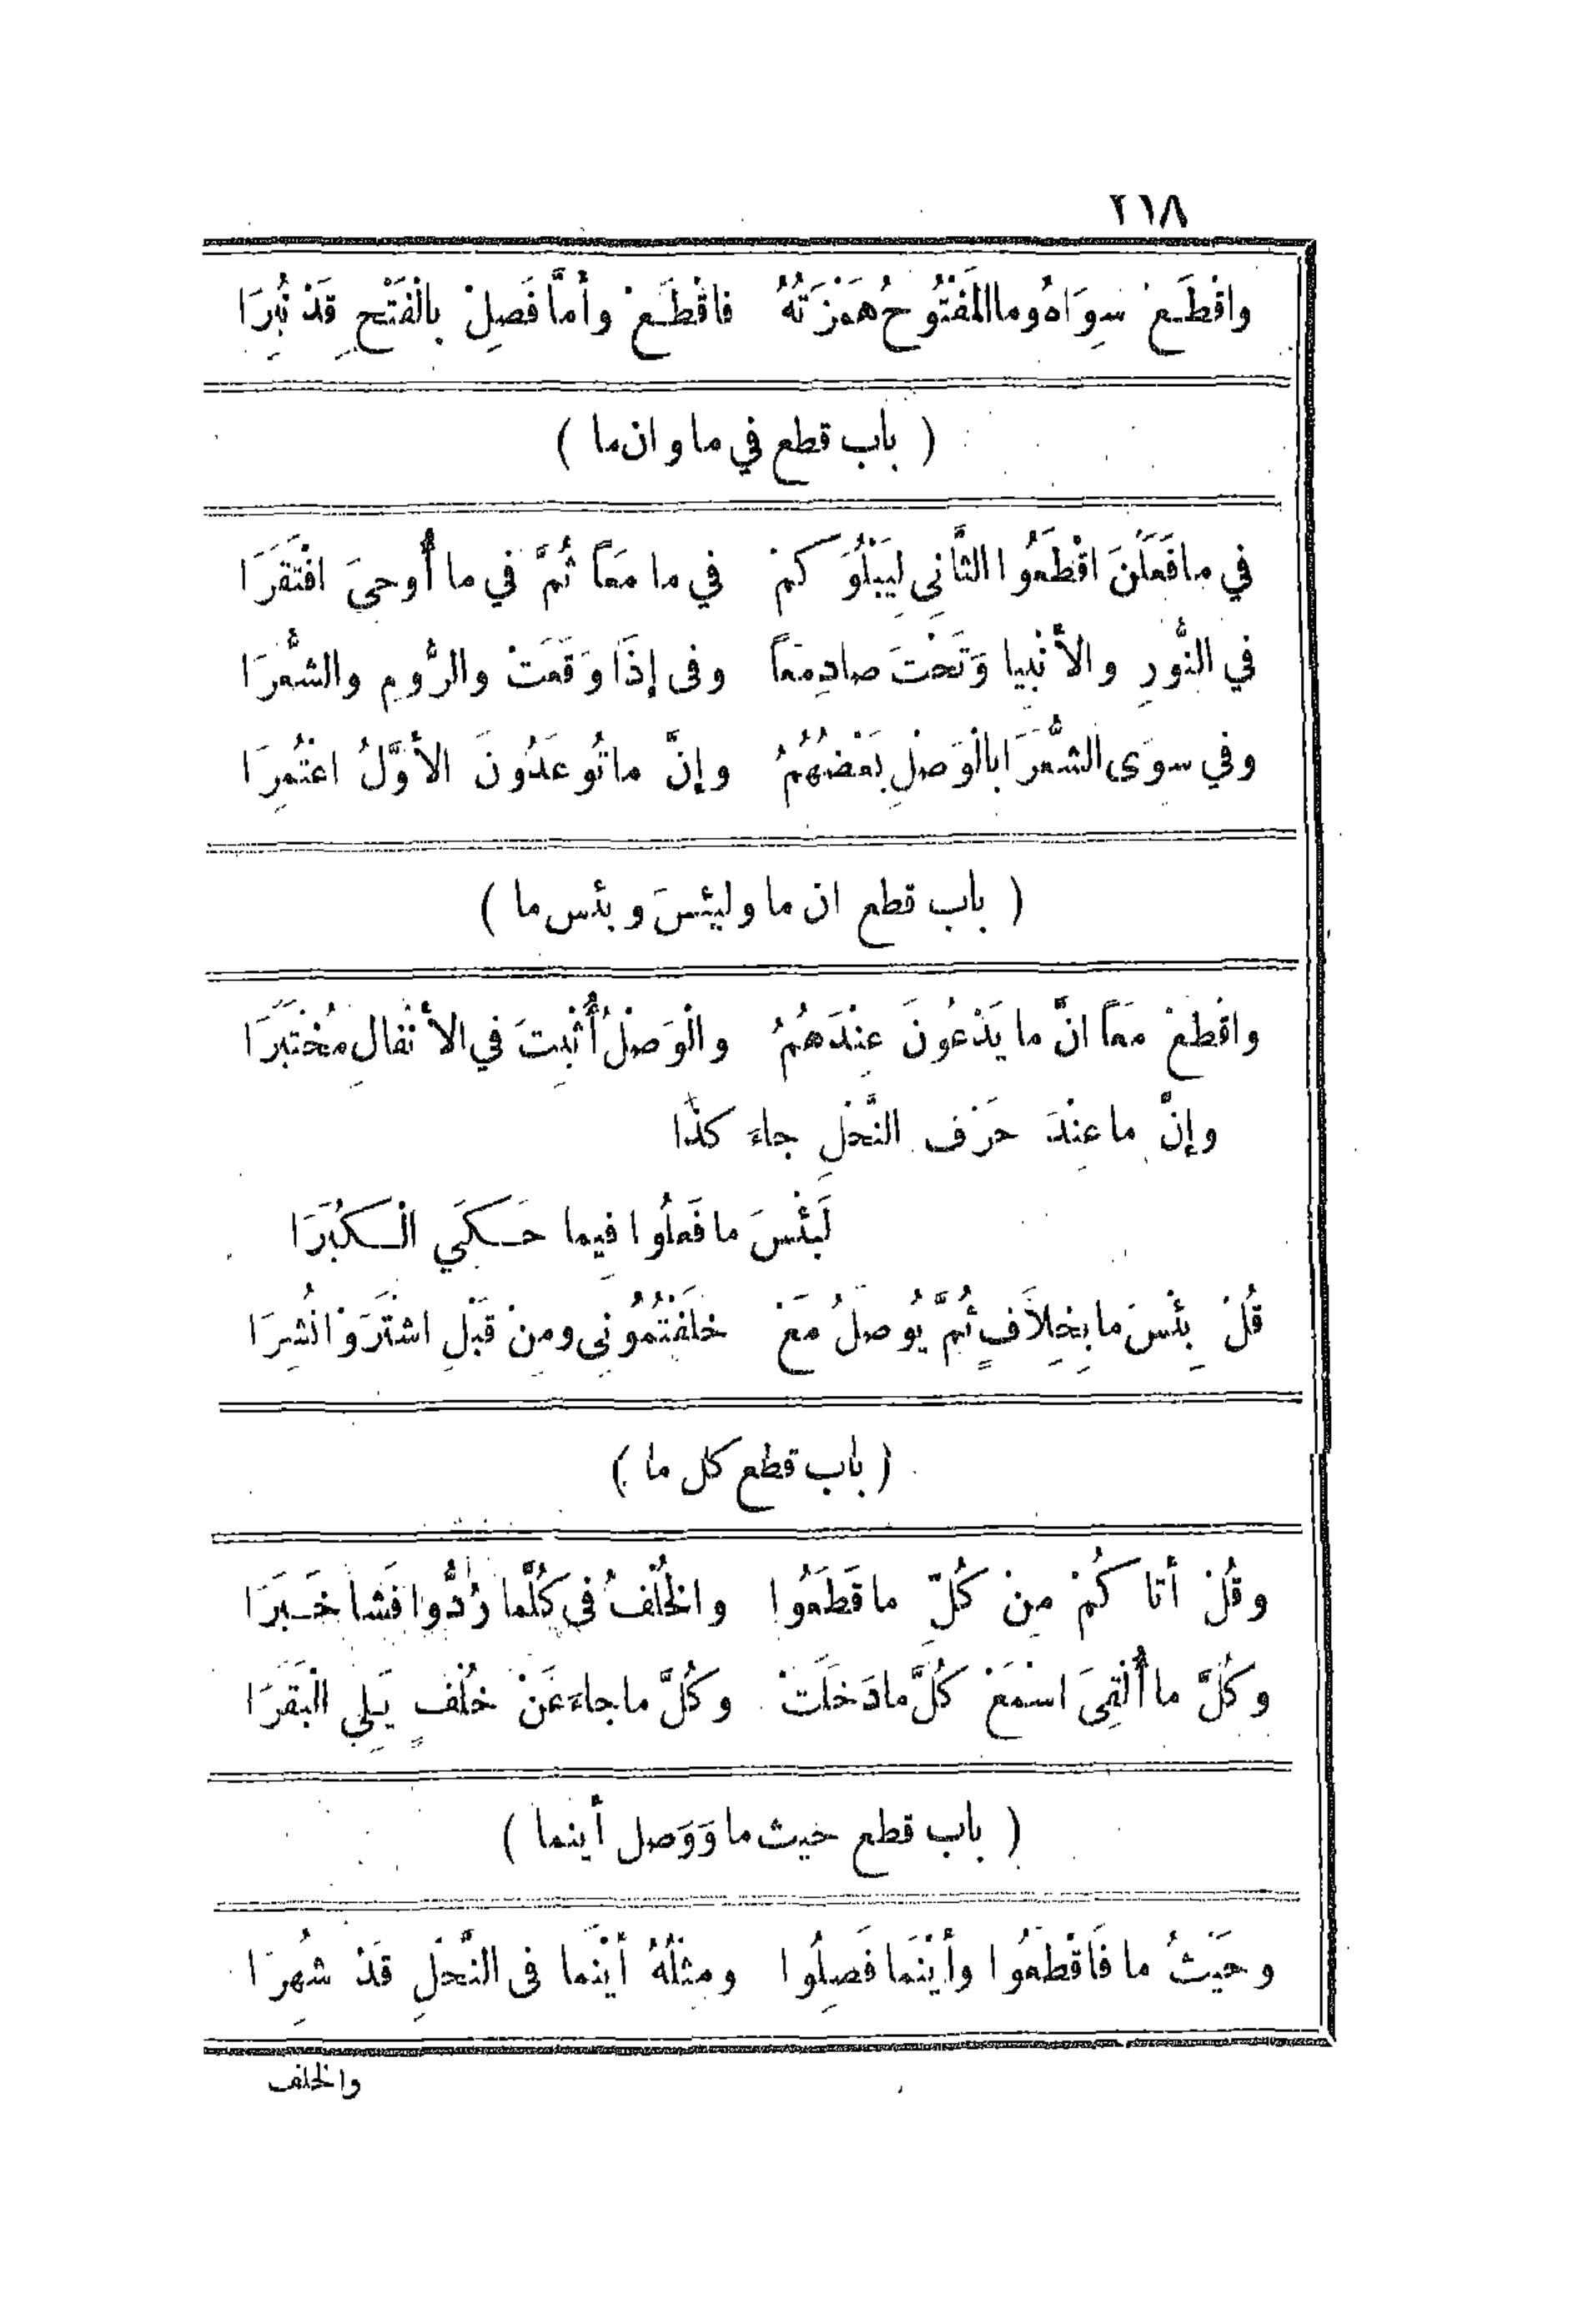 ٢١٨
واقْطَعْ سِوَاهُ وما المَفْتُوحُ هَمْزَتُهُ فاقْطَعْ وأمَّا فَصِلْ بالْفَتْحِ قَدْ نُبِرَا
( باب قطع في ما وان ما )
في ما فَعَلْنَ اقْطَعُوا الثَّانِى لِيَبْلُوَكمْ في ما مَعَاً ثُمَّ في ما أُوحِىَ افْتَقَرَا
في النُّورِ والأنْبيا وَتَحْتَ صادِ مَعَاً وفى إذَا وَقَعَتْ والرُّومِ والشُّعَرَا
وفي سِوَى الشُّعَرَا بالْوَصْلِ بَعْضُهُمُ وإنَّ ما تُوعَدُونَ الأوَّلُ اعْتُمِرَا
( باب قطع ان ما وليئسَ وبئس ما )
واقطعْ مَعَاً انَّ ما يَدْعُونَ عِنْدَهُمُ والْوَصْلُ أُثْبِتَ في الأنْفالِ مُخْتَبَرَا
وإنَّ ما عِنْدَ حَرْفِ النَّحْلِ جاءَ كذَا
لَبئْسَ ما فَعَلُوا فِيما حَكَي الْكُبَرَا
قُلْ بِئْسَ ما بِخِلاَفٍ ثُمَّ يُوصَلُ مَعْ خلَفْتُمُونِى ومِنْ قَبْلِ اشْتَرَوْا نُشِرَا
( باب قطع كل ما )
وقُلْ أتاكُمْ مِنْ كُلِّ ما قَطَعُوا والخُلْفُ فى كُلَّما رُدُّوا فَشا خَبَرَا
وكُلَّ ما أُلْقِىَ اسْمَعْ كُلَّ ما دَخَلَتْ وكُلَّ ما جاءَ عَنْ خُلْفٍ يَلِي الْبَقَرَا
( باب قطع حيث ما وَوَصل أينما )
وحَيْثُ ما فَاقْطَعُوا وأيْنَمَا فَصِلُوا ومِثْلُهُ أيْنَما فى النَّحْلِ قَدْ شُهِرَا
والخلف